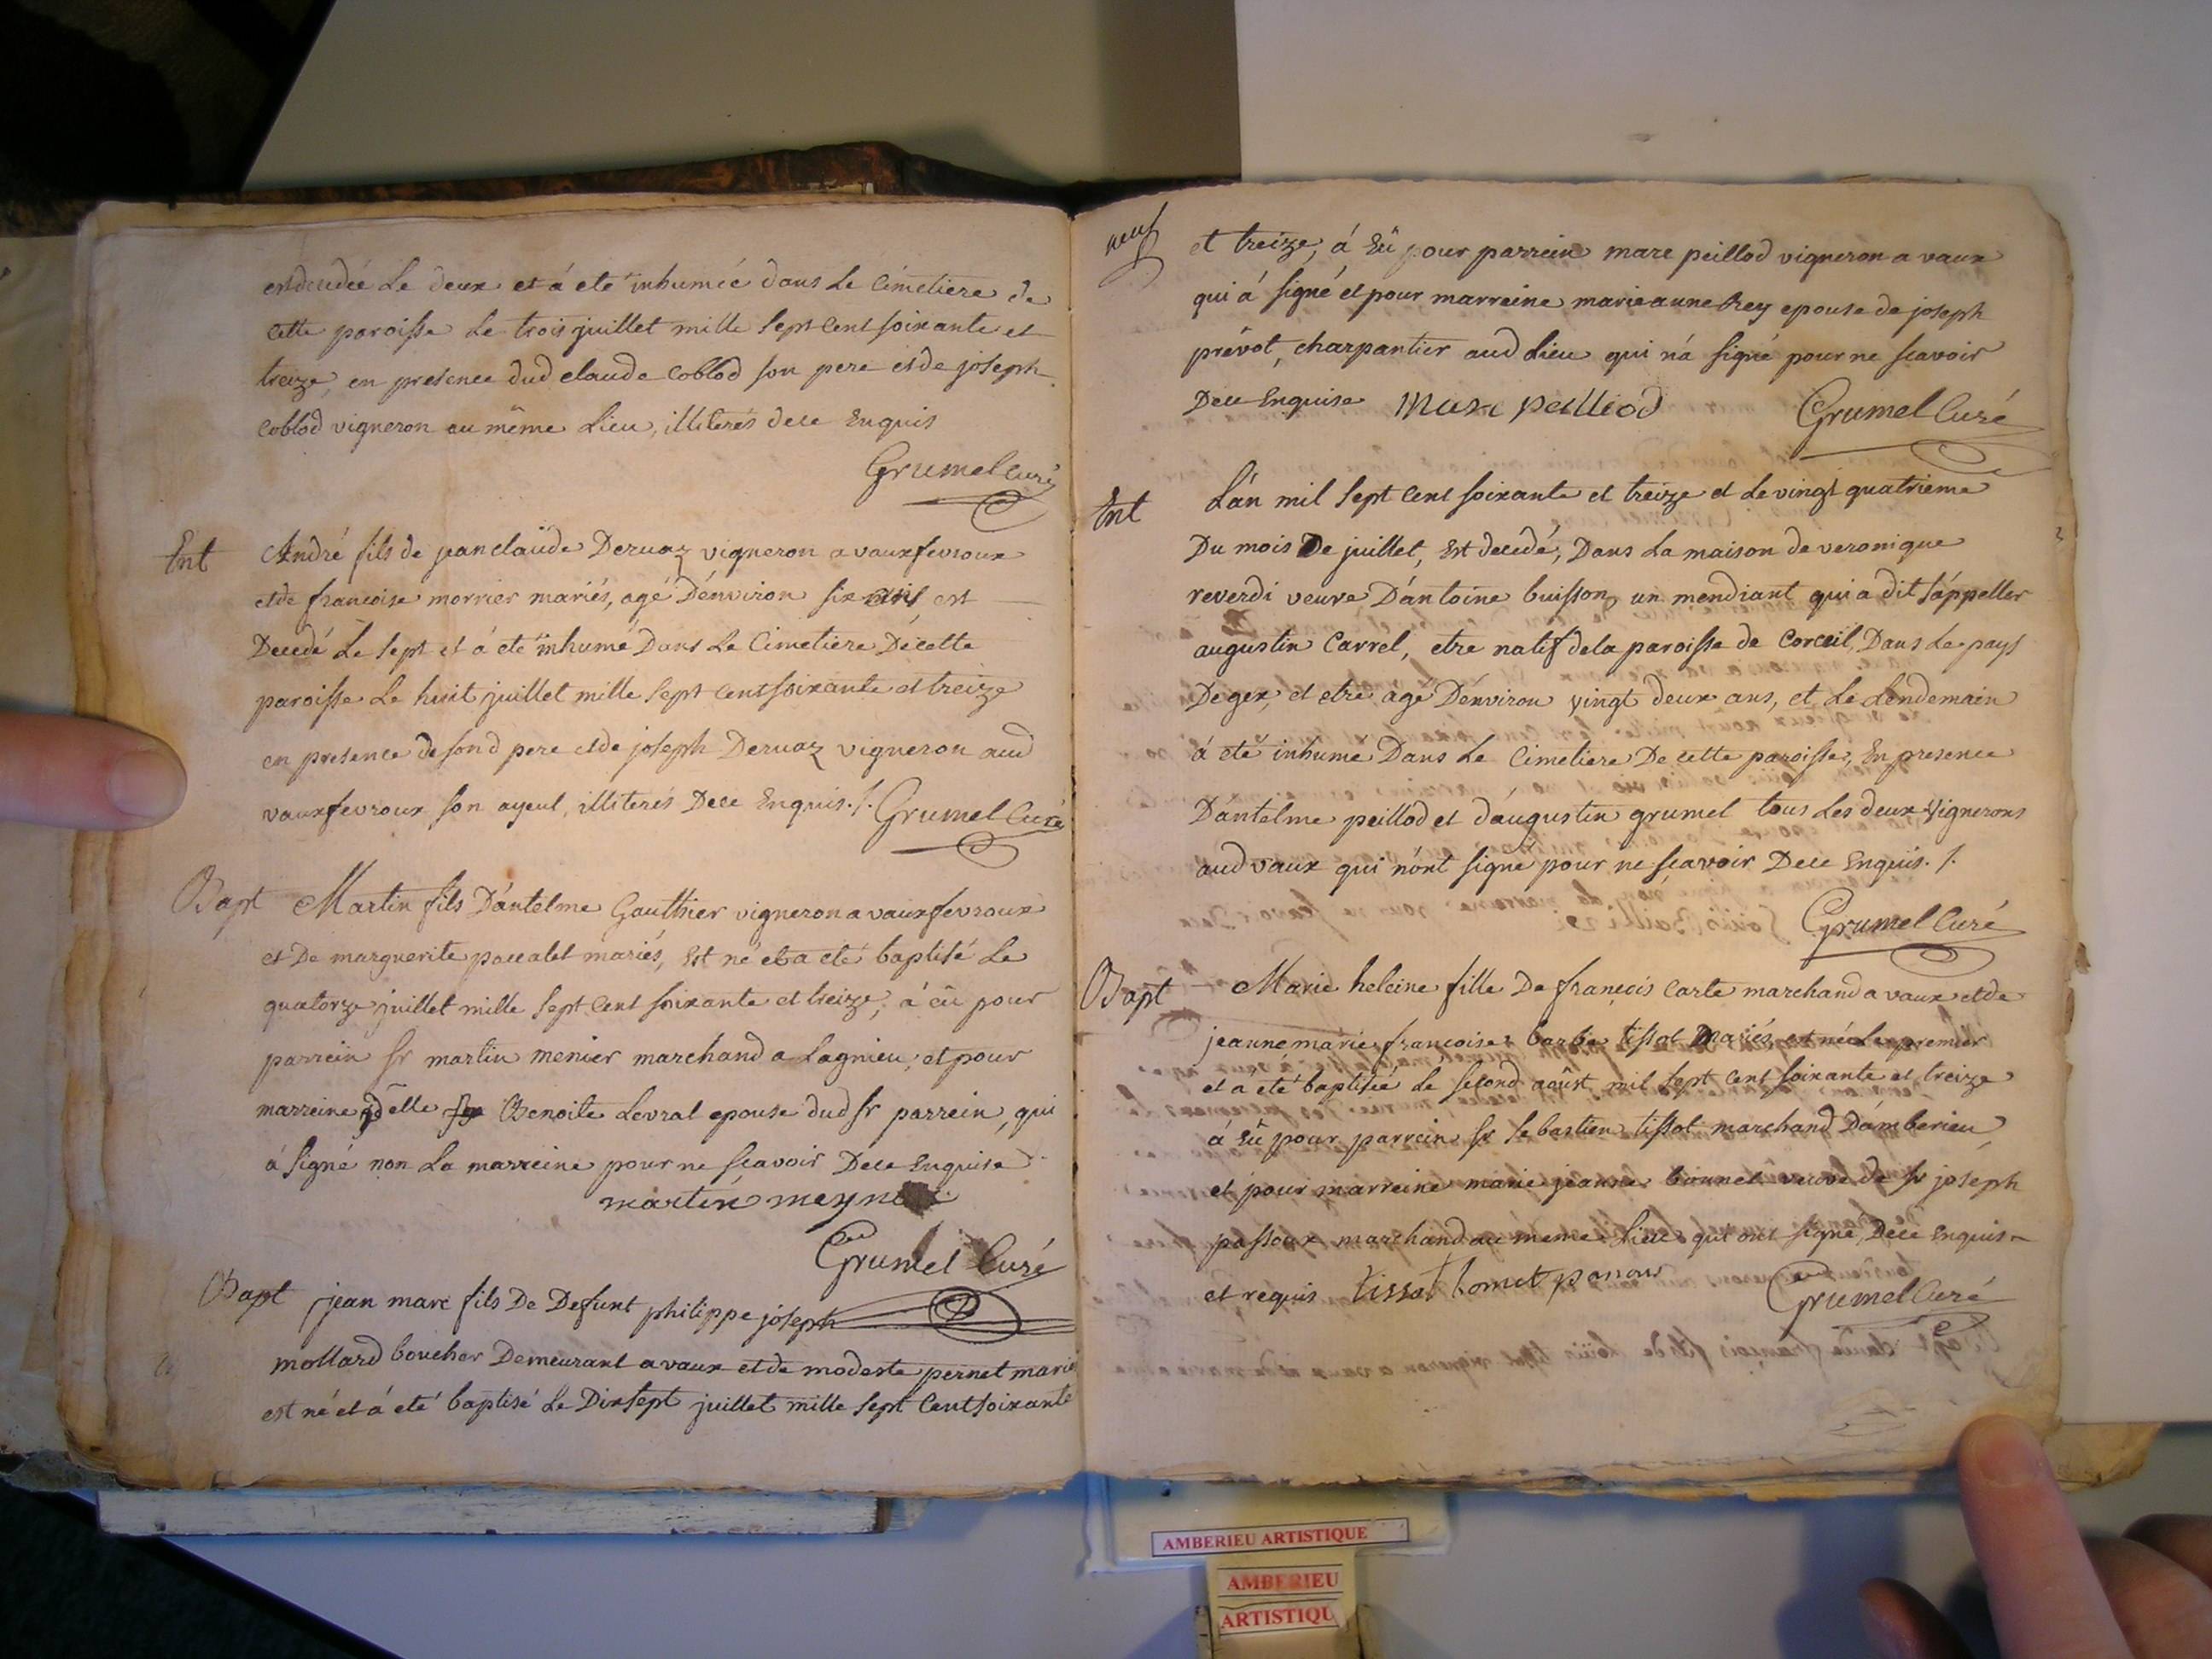 est decedée Le deux et á eté inhumée dans Le Cimetiere de
cette paroisse Le trois juillet mille sept cent soixante et
treize, en presence dud claude Coblod son pere et de joseph
Coblod vigneron au même Lieu, illiterés dece Enquis
Grumel Curé
Ent André fils de jean claude Deruaz vigneron a vauxfevroux
et de francoise morrier mariés, agé D'environ six ans est
Decedé Le sept et á eté inhumé Dans Le Cimetiere De cette
paroisse Le huit juillet mille sept cent soixante et treize
en presence de sond pere et de joseph Deruaz vigneron aud
vauxfevroux son ayeul, illiterés Dece Enquis ./. Grumel Curé
Bapt Martin fils D'antelme Gauthier vigneron a vauxfevroux
et De marguerite paccalet mariés, Est né et a eté baptisé Le
quatorze juillet mille sept cent soixante et treize, á eü pour
parrein sr martin menier marchand a Lagnieu, et pour
marreine delle Benoite Levrat epouse dud sr parrein, qui
á signé non La marreine pour ne scavoir Dece Enquise
martin meynier
Grumel Curé
Bapt jean marc fils De Defunt philippe joseph
mollard boucher Demeurant a vaux et de modeste pernet mariés
est né et á eté baptisé Le Dixsept juillet mille sept Cent soixante
neuf
et treize, á Eü pour parrein marc peillod vigneron a vaux
qui á signé et pour marreine marie anne Rey epouse de joseph
prévot, charpantier aud Lieu qui n'á signé pour ne scavoir
Dece Enquise Marc peilliod Grumel Curé
Ent L'án mil sept Cent soixante et treize et Le vingt quatrieme
Du mois De juillet, Est decedé, Dans La maison de veronique
reverdi veuve D'antoine buisson, un mendiant qui a dit s'áppeller
augustin Carrel, etre natif de la paroisse de Corceil, Dans Le pays
De gex, et etre agé D'environ vingt deux ans, et Le Lendemain
á eté inhumé Dans Le Cimetiere De cette paroisse, En presence
D'antelme peillod et d'augustin grumel tous Les deux vignerons
aud vaux qui n'ónt signé pour ne scavoir Dece Enquis ./.
Grumel Curé
Bapt Marie heleine fille De francois Carte marchand a vaux et de
jeanne marie francoise barbe tissot Mariés, est née Le premier
et a eté baptisée Le second août mil sept Cent soixante et treize
á Eü pour parrein sr sebastien tissot marchand D'amberieu,
et pour marreine marie jeanne bonnet veuve de sr joseph
passoux marchand au meme Lieu qui ont signé, Dece Enquis
et requis tissot Grumel Curé
AMBERIEU ARTISTIQUE
AMBERIEU
ARTISTIQU